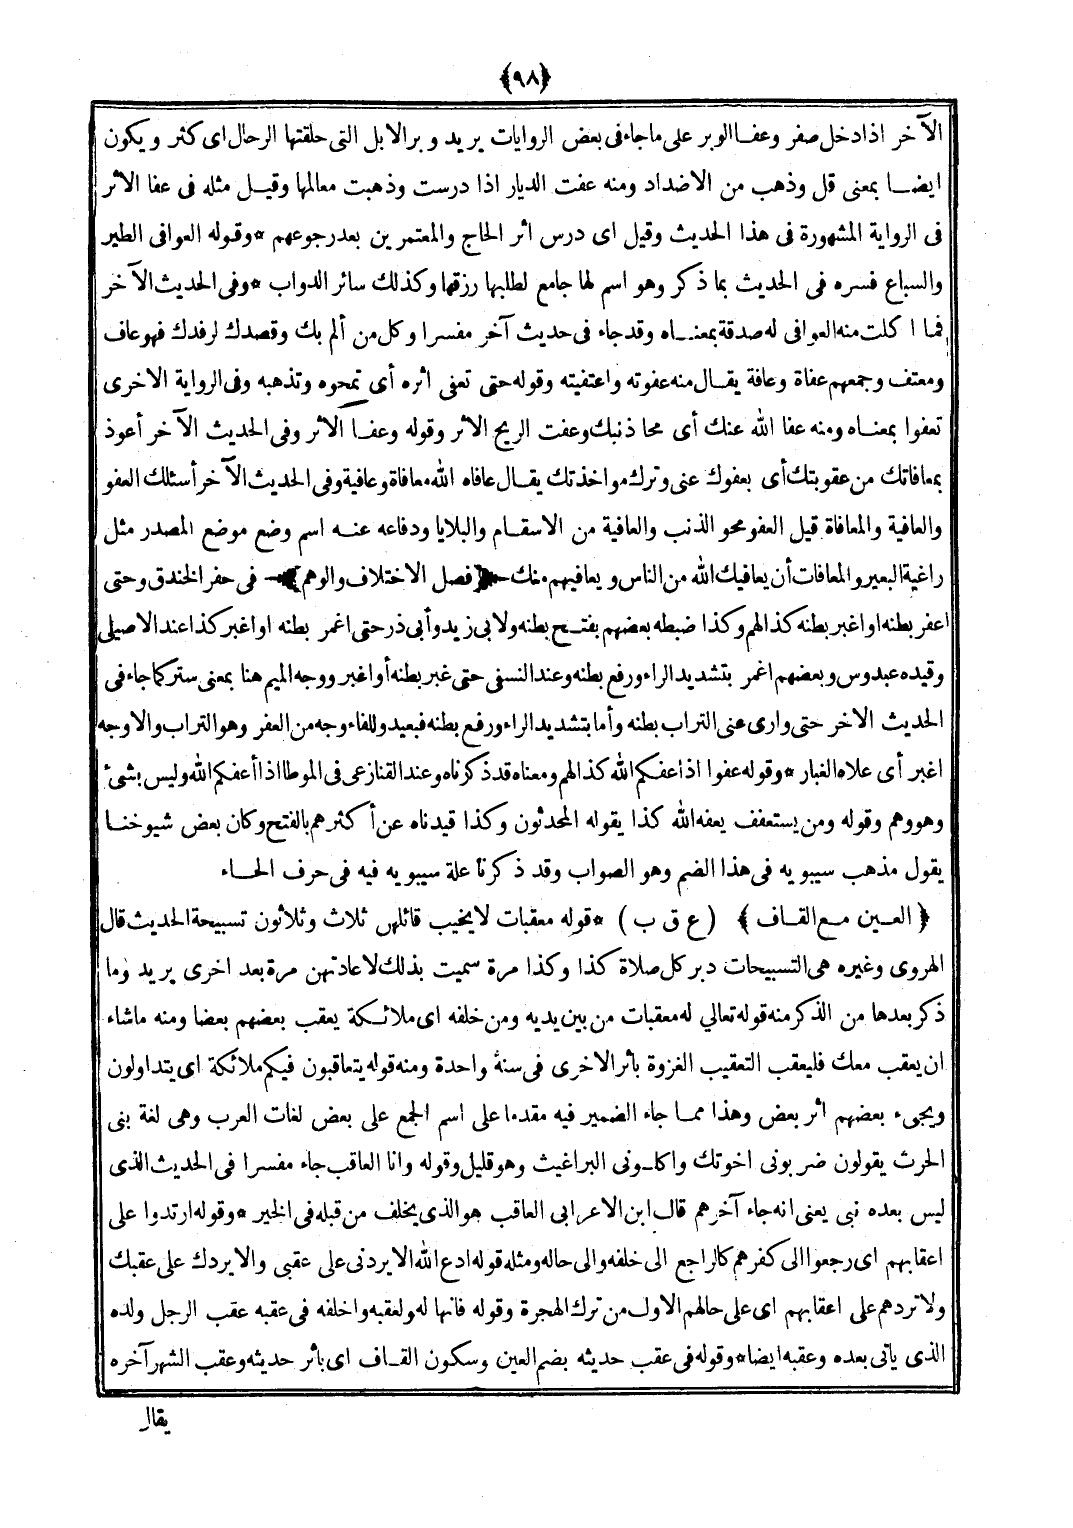 ﴿٩٨﴾
الآخر اذا دخل صفر وعفا الوبر على ماجاء فى بعض الروايات يريد وبر الابل التى حلقتها الرحال اى كثر ويكون
ايضا بمعنى قل وذهب من الاضداد ومنه عفت الديار اذا درست وذهبت معالمها وقيل مثله فى عفا الاثر
فى الرواية المشهورة فى هذا الحديث وقيل اى درس اثر الحاج والمعتمرين بعد رجوعهم *وقوله العوافى الطير
والسباع فسره فى الحديث بما ذكر وهو اسم لها جامع لطلبها رزقها وكذلك سائر الدواب *وفى الحديث الآخر
فما اكلت منه العوافى له صدقة بمعناه وقد جاء فى حديث آخر مفسرا وكل من ألم بك وقصدك لرفدك فهو عاف
ومعتف وجمعهم عفاة وعافة يقال منه عفوته واعتفيته وقوله حتى تعفى اثره أى تمحوه وتذهبه وفى الرواية الاخرى
تعفوا بمعناه ومنه عفا الله عنك أى محا ذنبك وعفت الريح الاثر وقوله وعفا الاثر وفى الحديث الآخر أعوذ
بمعافاتك من عقوبتك أى بعفوك عنى وترك مواخذتك يقال عافاه الله معافاة وعافية وفى الحديث الآخر أسئلك العفو
والعافية والمعافاة قيل العفو محو الذنب والعافية من الاسقام والبلايا ودفاعه عنه اسم وضع موضع المصدر مثل
راغية البعير والمعافات أن يعافيك الله من الناس ويعافيهم منك ﴿فصل الاختلاف والوهم﴾ فى حفر الخندق وحتى
اعفر بطنه او اغبر بطنه كذا لهم وكذا ضبطه بعضهم بفتح بطنه ولابى زيد وأبى ذر حتى اغمر بطنه او اغبر كذا عند الاصيلى
وقيده عبدوس وبعضهم اغمر بتشديد الراء ورفع بطنه وعند النسفى حتى غبر بطنه أو اغبر ووجه الميم هنا بمعنى ستر كما جاء فى
الحديث الاخر حتى وارى عنى التراب بطنه وأما بتشديد الراء ورفع بطنه فبعيد وللفاء وجه من العفر وهو التراب والاوجه
اغبر أى علاه الغبار *وقوله عفوا اذ اعفكم الله كذا لهم ومعناه قد ذكرناه وعند القنازعى فى الموطا اذا أعفكم الله وليس بشئ
وهو وهم وقوله ومن يستعفف يعفه الله كذا يقوله المحدثون وكذا قيدناه عن أكثرهم بالفتح وكان بعض شيوخنا
يقول مذهب سيبويه فى هذا الضم وهو الصواب وقد ذكرنا علة سيبويه فيه فى حرف الحاء
﴿العين مع القاف﴾ (ع ق ب) *قوله معقبات لا يخيب قائلهن ثلاث وثلاثون تسبيحة الحديث قال
الهروى وغيره هى التسبيحات دبر كل صلاة كذا وكذا مرة سميت بذلك لاعادتهن مرة بعد اخرى يريد وما
ذكر بعدها من الذكر منه قوله تعالي له معقبات من بين يديه ومن خلفه اى ملائكة يعقب بعضهم بعضا ومنه ماشاء
ان يعقب معك فليعقب التعقيب الغزوة بأثر الاخرى فى سنة واحدة ومنه قوله يتعاقبون فيكم ملائكة اى يتداولون
ويجىء بعضهم اثر بعض وهذا مما جاء الضمير فيه مقدما على اسم الجمع على بعض لغات العرب وهى لغة بنى
الحرث يقولون ضربونى اخوتك واكلونى البراغيث وهو قليل وقوله وانا العاقب جاء مفسرا فى الحديث الذى
ليس بعده نبى يعنى انه جاء آخرهم قال ابن الاعرابى العاقب هو الذى يخلف من قبله فى الخير *وقوله ارتدوا على
اعقابهم اى رجعوا الى كفرهم كالراجع الى خلفه والى حاله ومثله قوله ادع الله الا يردنى على عقبى والا يردك على عقبك
ولا تردهم على اعقابهم اى على حالهم الاول من ترك الهجرة وقوله فانها له ولعقبه واخلفه فى عقبه عقب الرجل ولده
الذى يأتى بعده وعقبه ايضا *وقوله فى عقب حديثه بضم العين وسكون القاف اى بأثر حديثه وعقب الشهر آخره
يقال